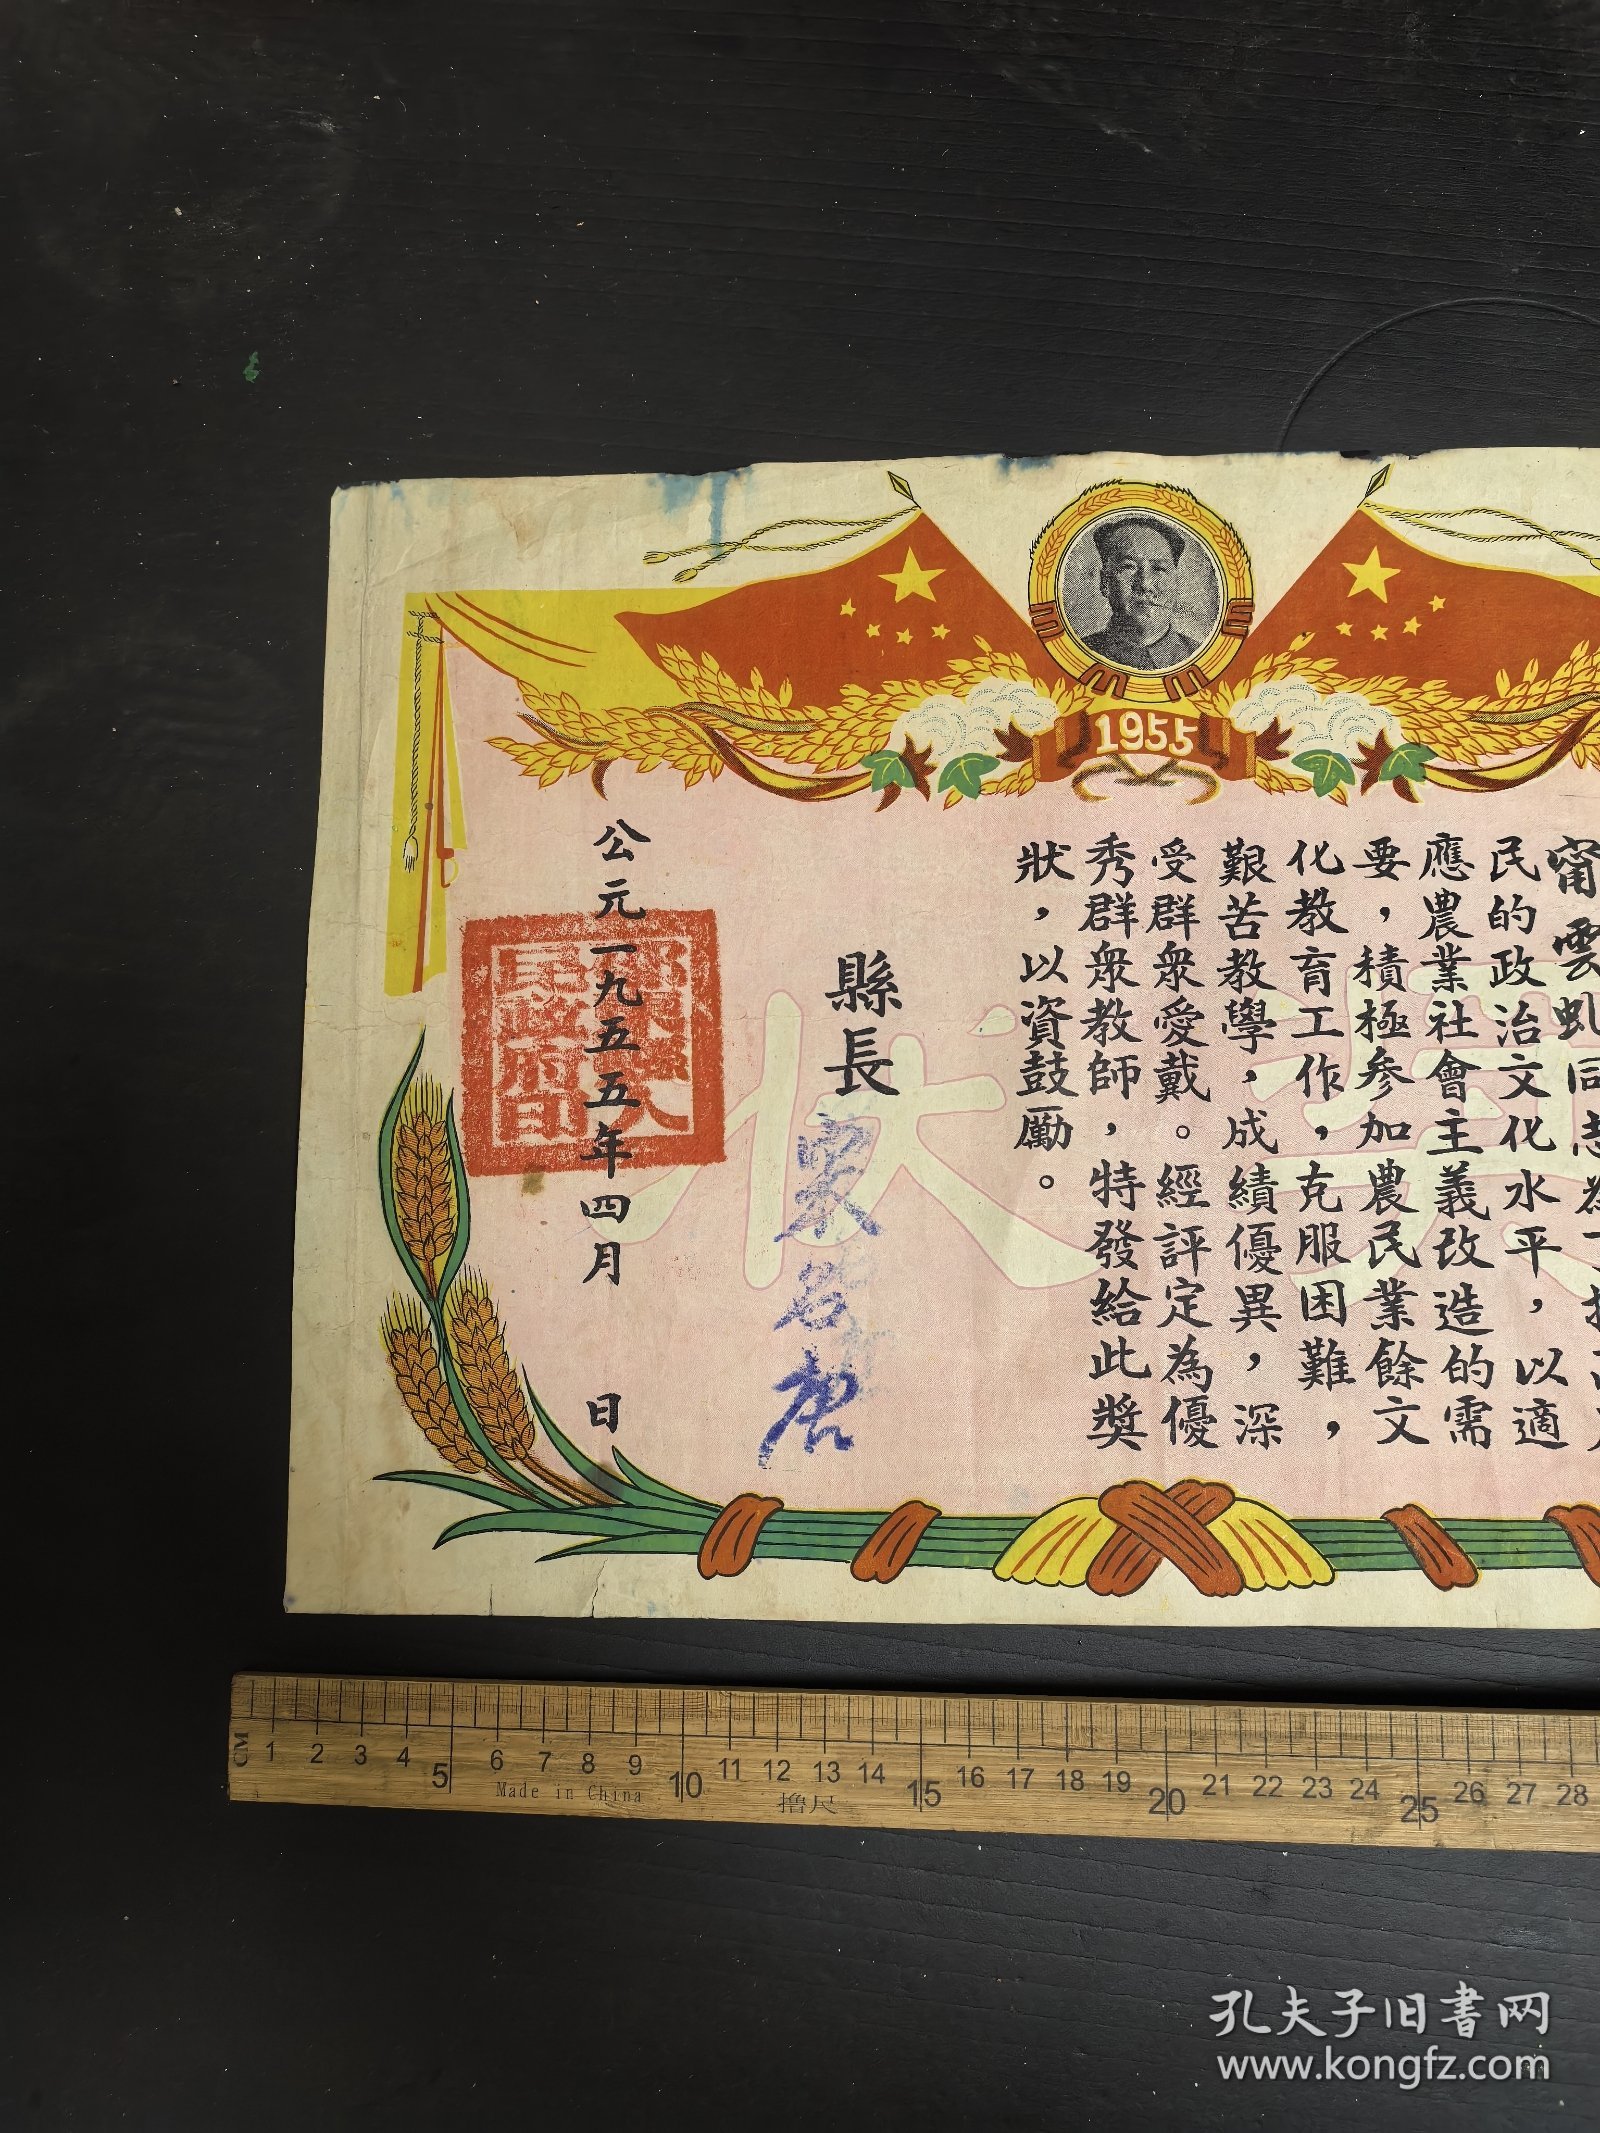 1955
甯雲虬同志為了提高
民的政治文化水平，以適
應農業社會主義改造的需
要，積極參加農民業餘文
化教育工作，克服困難，
艱苦教學，成績優異，深
受群衆愛戴。經評定為優
秀群衆教師，特發給此獎
狀，以資鼓勵。
縣長
公元一九五五年四月 日
縣人
民政府印
獎狀
CM 1 2 3 4 5 6 7 8 9 10 11 12 13 14 15 16 17 18 19 20 21 22 23 24 25 26 27 28
Made in China
撸尺
孔夫子旧書网
www.kongfz.com